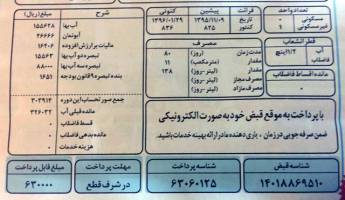 تعداد واحد
مسکونی ۰
غیر مسکونی ۱
قطر انشعاب
آب ۱/۲ اینچ
فاضلاب
مانده اقساط فاضلاب
قرائت پیشین کنونی
تاریخ ۱۳۹۵/۱۱/۰۹ ۱۳۹۶/۰۱/۲۹
کنتور ۸۲۵ ۸۳۶
مصرف
مدت زمان (روز) ۸۰
مقدار (مترمکعب) ۱۱
مقدار (لیتر-روز) ۱۳۸
مصرف مجاز (لیتر-روز)
مصرف مازاد (لیتر-روز)
شرح مبلغ
آب بها ۱۵۵۶۲۸
آبونمان ۲۶۶۶۶
مالیات بر ارزش افزوده ۱۶۴۰۶
تبصره دو آب بها
تبصره سه آب بها ۸۸۰۰۰
بند ه تبصره ۹۰ قانون بودجه ۱۶۵۱
جمع صورتحساب این دوره
مانده قبلی آب ۳۴۶۰۳۲
قسط فاضلاب ۰
مانده بدهی فاضلاب ۰
هزینه خدمات ۰
با پرداخت به موقع قبض خود به صورت الکترونیکی
ضمن صرفه جویی در زمان ، یاری دهنده ما در ارائه بهینه خدمات باشید.
شناسه قبض شناسه پرداخت مهلت پرداخت مبلغ قابل پرداخت
۱۴۰۱۸۸۶۹۵۱۰ ۶۳۰۶۰۱۲۵ در شرف قطع ۶۳۰۰۰۰